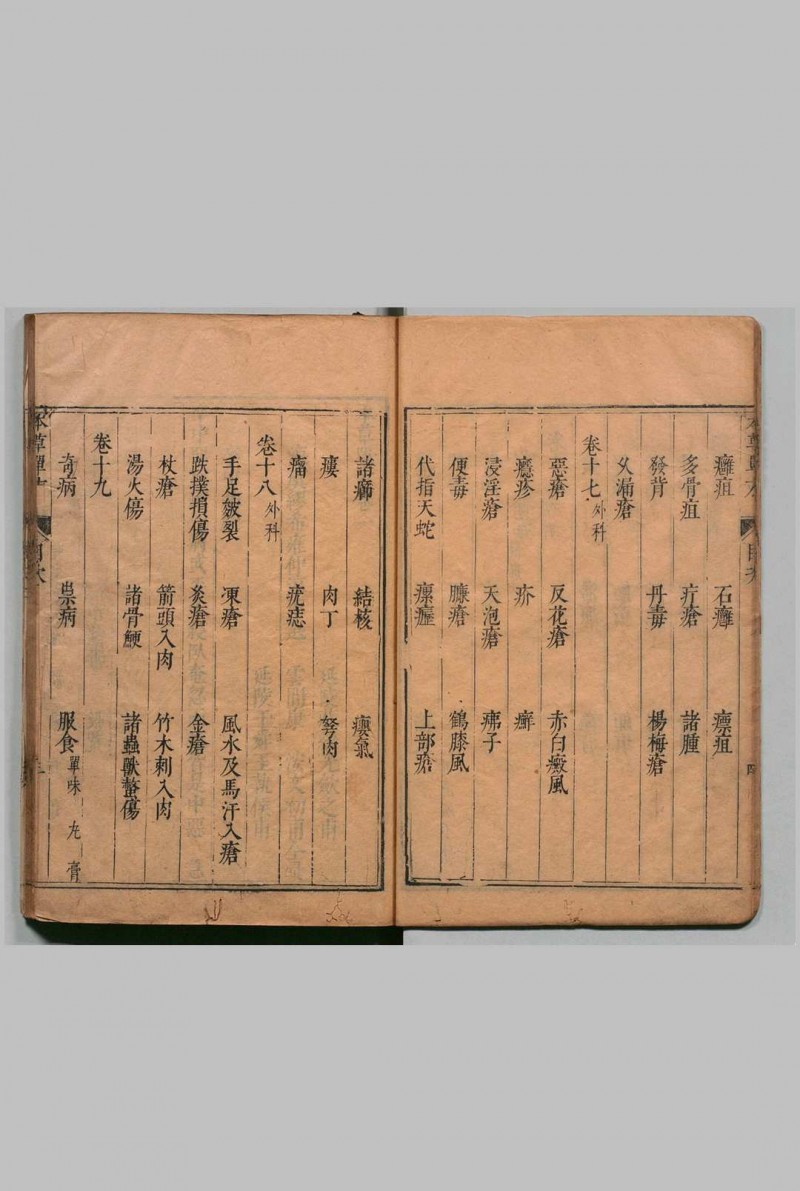 癰疽 石癰 瘭疽
多骨疽 疔瘡 諸腫
發背 丹毒 楊梅瘡
久漏瘡
卷十七 外科
惡瘡 反花瘡 赤白癜風
癮疹 疥 癬
浸淫瘡 天泡瘡 疿子
便毒 臁瘡 鶴膝風
代指天蛇 瘰癧 上部瘡
諸瘹 結核 癭氣
瘻 肉丁 弩肉
瘤 疣痣
卷十八 外科
手足皴裂 凍瘡 風水及馬汗入瘡
跌撲損傷 灸瘡 金瘡
杖瘡 箭頭入肉 竹木刺入肉
湯火傷 諸骨鯁 諸蟲獸螫傷
卷十九
奇病 祟病 服食 單味 丸 膏
本草單方
目次